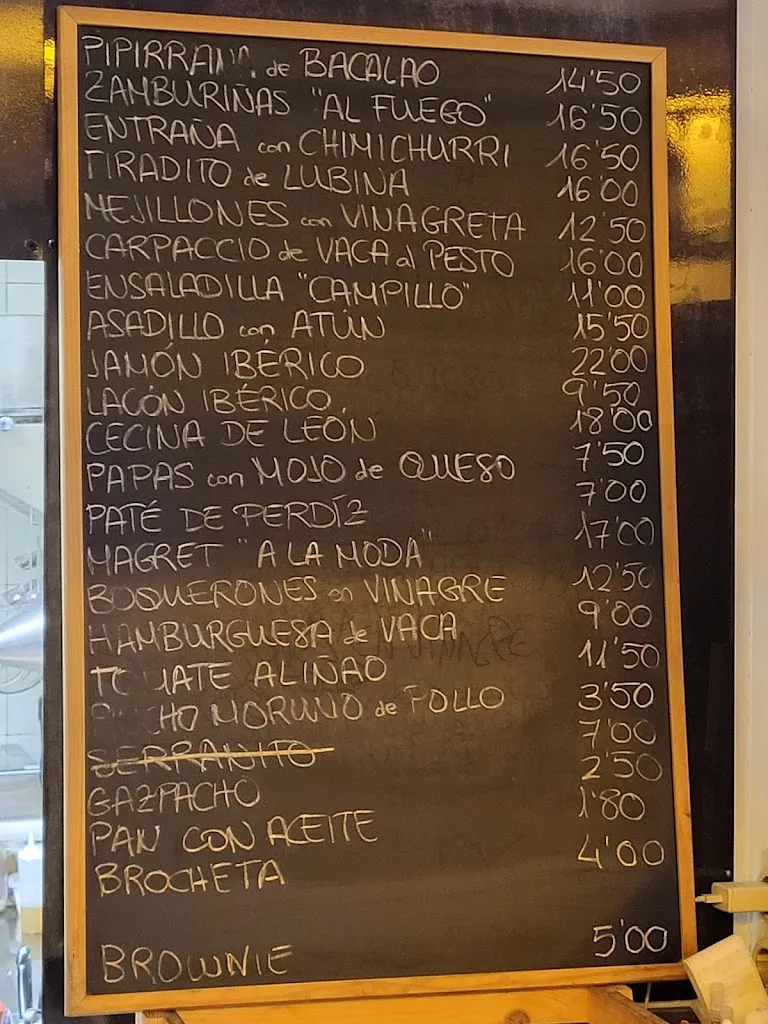 PIPIRRANA de BACALAO 14'50
ZAMBURIÑAS "AL FUEGO" 16'50
ENTRAÑA con CHIMICHURRI 16'50
TIRADITO de LUBINA 16'00
MEJILLONES con VINAGRETA 12'50
CARPACCIO de VACA al PESTO 16'00
ENSALADILLA "CAMPILLO" 11'00
ASADILLO con ATÚN 15'50
JAMÓN IBÉRICO 22'00
LACÓN IBÉRICO 9'50
CECINA DE LEÓN 18'00
PAPAS con MOJO de QUESO 7'50
PATÉ DE PERDÍZ 7'00
MAGRET "A LA MODA" 17'00
BOQUERONES en VINAGRE 12'50
HAMBURGUESA de VACA 9'00
TOMATE ALIÑAO 11'50
PINCHO MORUNO de POLLO 3'50
SERRANITO 7'00
GAZPACHO 2'50
PAN CON ACEITE 1'80
BROCHETA 4'00
BROWNIE 5'00